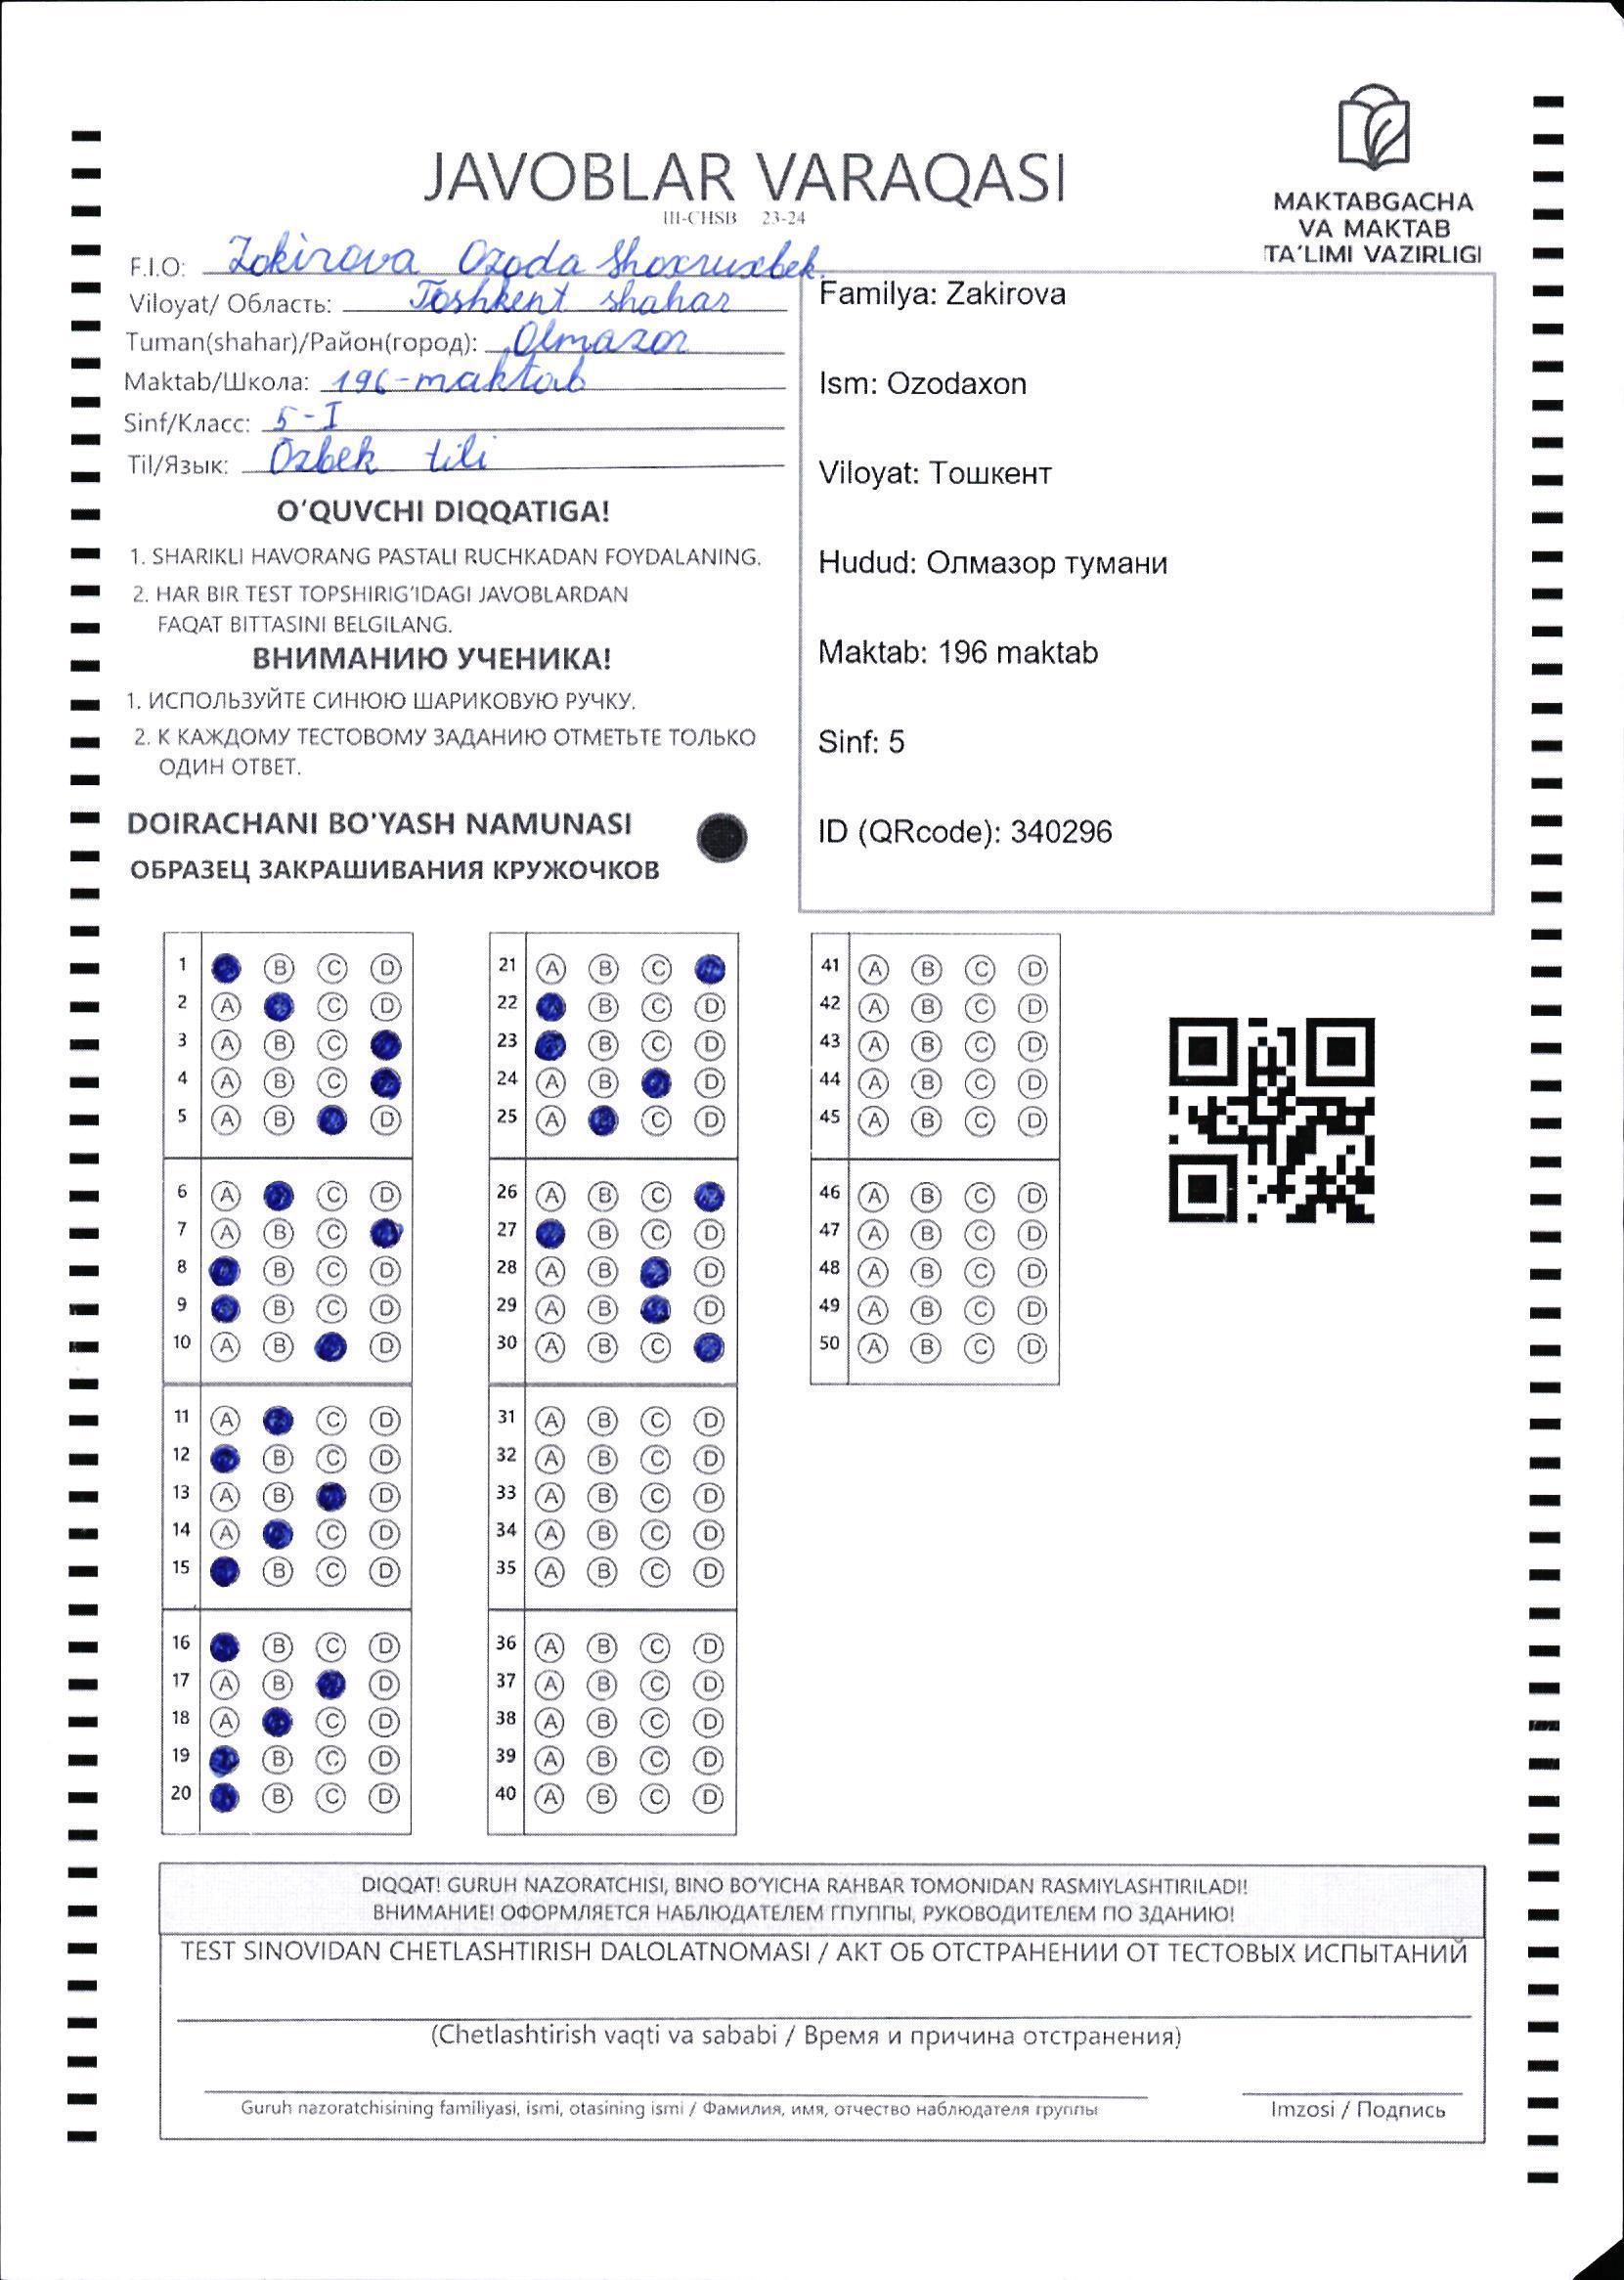 JAVOBLAR VARAQASI
III-CHSB 23-24
MAKTABGACHA
VA MAKTAB
TA'LIMI VAZIRLIGI
F.I.O: Zokirova Ozoda Shoxruxbek
Viloyat/ Область: Toshkent shahar
Tuman(shahar)/Район(город): Olmazor
Maktab/Школа: 196-maktab
Sinf/Класс: 5-I
Til/Язык: Ozbek tili
O'QUVCHI DIQQATIGA!
1. SHARIKLI HAVORANG PASTALI RUCHKADAN FOYDALANING.
2. HAR BIR TEST TOPSHIRIG'IDAGI JAVOBLARDAN
FAQAT BITTASINI BELGILANG.
ВНИМАНИЮ УЧЕНИКА!
1. ИСПОЛЬЗУЙТЕ СИНЮЮ ШАРИКОВУЮ РУЧКУ.
2. К КАЖДОМУ ТЕСТОВОМУ ЗАДАНИЮ ОТМЕТЬТЕ ТОЛЬКО
ОДИН ОТВЕТ.
DOIRACHANI BO'YASH NAMUNASI
ОБРАЗЕЦ ЗАКРАШИВАНИЯ КРУЖОЧКОВ
Familya: Zakirova
Ism: Ozodaxon
Viloyat: Тошкент
Hudud: Олмазор тумани
Maktab: 196 maktab
Sinf: 5
ID (QRcode): 340296
1 B C D
2 A C D
3 A B C
4 A B C
5 A B D
6 A C D
7 A B C
8 B C D
9 B C D
10 A B D
11 A C D
12 B C D
13 A B D
14 A C D
15 B C D
16 B C D
17 A B D
18 A C D
19 B C D
20 B C D
21 A B C
22 B C D
23 B C D
24 A B D
25 A C D
26 A B C
27 B C D
28 A B D
29 A B D
30 A B C
31 A B C D
32 A B C D
33 A B C D
34 A B C D
35 A B C D
36 A B C D
37 A B C D
38 A B C D
39 A B C D
40 A B C D
41 A B C D
42 A B C D
43 A B C D
44 A B C D
45 A B C D
46 A B C D
47 A B C D
48 A B C D
49 A B C D
50 A B C D
DIQQAT! GURUH NAZORATCHISI, BINO BO'YICHA RAHBAR TOMONIDAN RASMIYLASHTIRILADI!
ВНИМАНИЕ! ОФОРМЛЯЕТСЯ НАБЛЮДАТЕЛЕМ ГПУППЫ, РУКОВОДИТЕЛЕМ ПО ЗДАНИЮ!
TEST SINOVIDAN CHETLASHTIRISH DALOLATNOMASI / АКТ ОБ ОТСТРАНЕНИИ ОТ ТЕСТОВЫХ ИСПЫТАНИЙ
(Chetlashtirish vaqti va sababi / Время и причина отстранения)
Guruh nazoratchisining familiyasi, ismi, otasining ismi / Фамилия, имя, отчество наблюдателя группы
Imzosi / Подпись